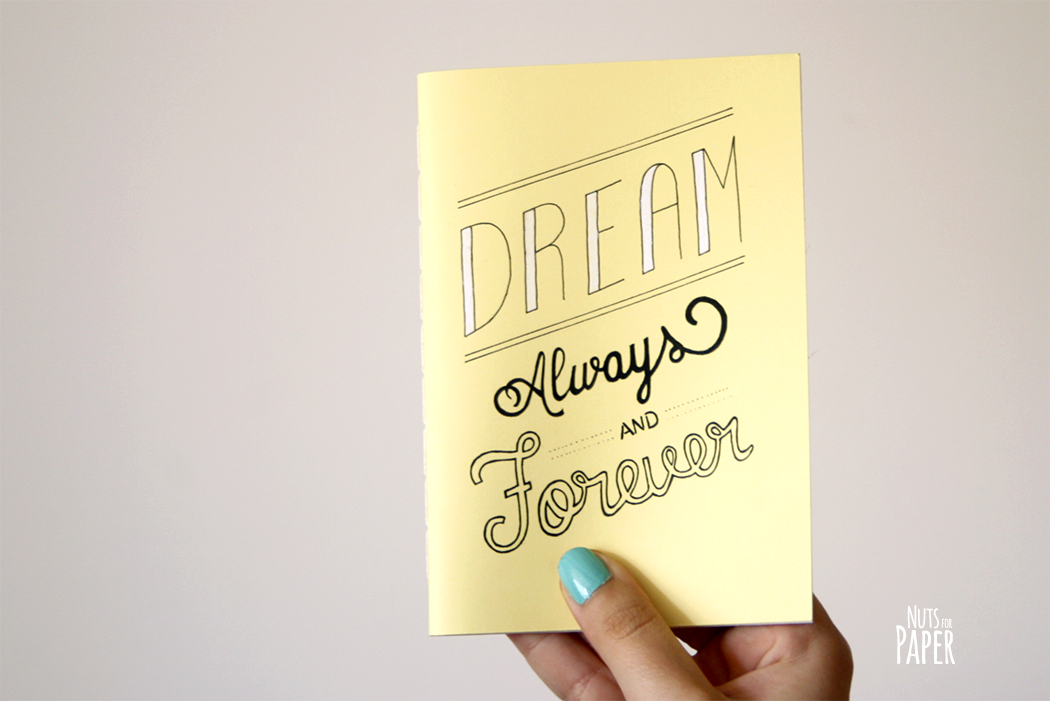 DREAM
Always
AND
Forever
NUTS FOR
PAPER